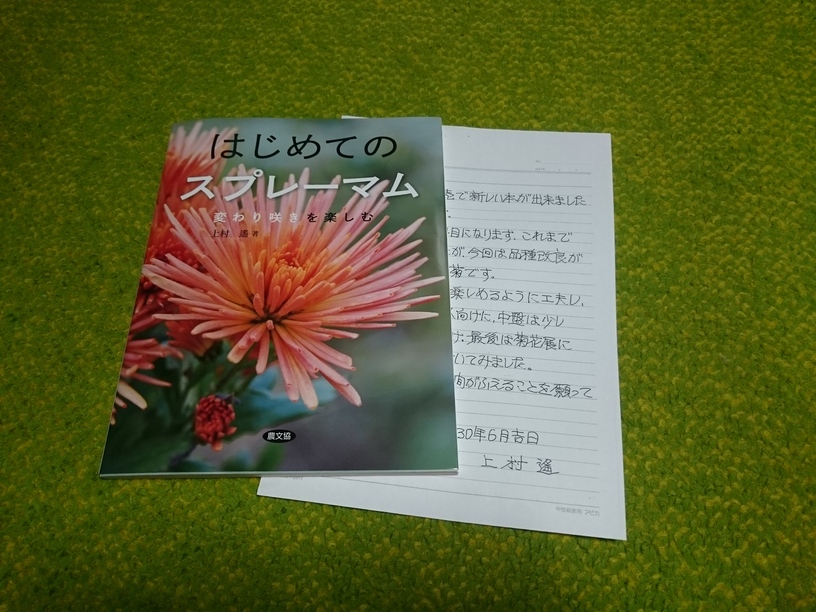 はじめての
スプレーマム
変わり咲きを楽しむ
上村 遙 著
農文協
で新しい本が出来ました
。
目になります。これまで
が、今回は品種改良が
菊です。
楽しめるように工夫し、
向けに、中盤は少し
け、最後は菊花展に
いてみました。
間がふえることを願って
30年6月吉日
上村 遙